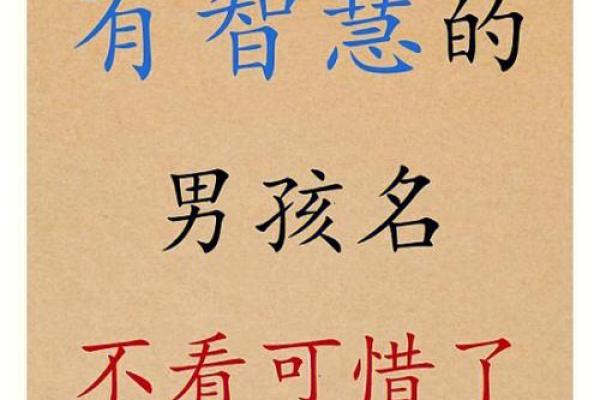 有智慧的
男孩名
不看可惜了